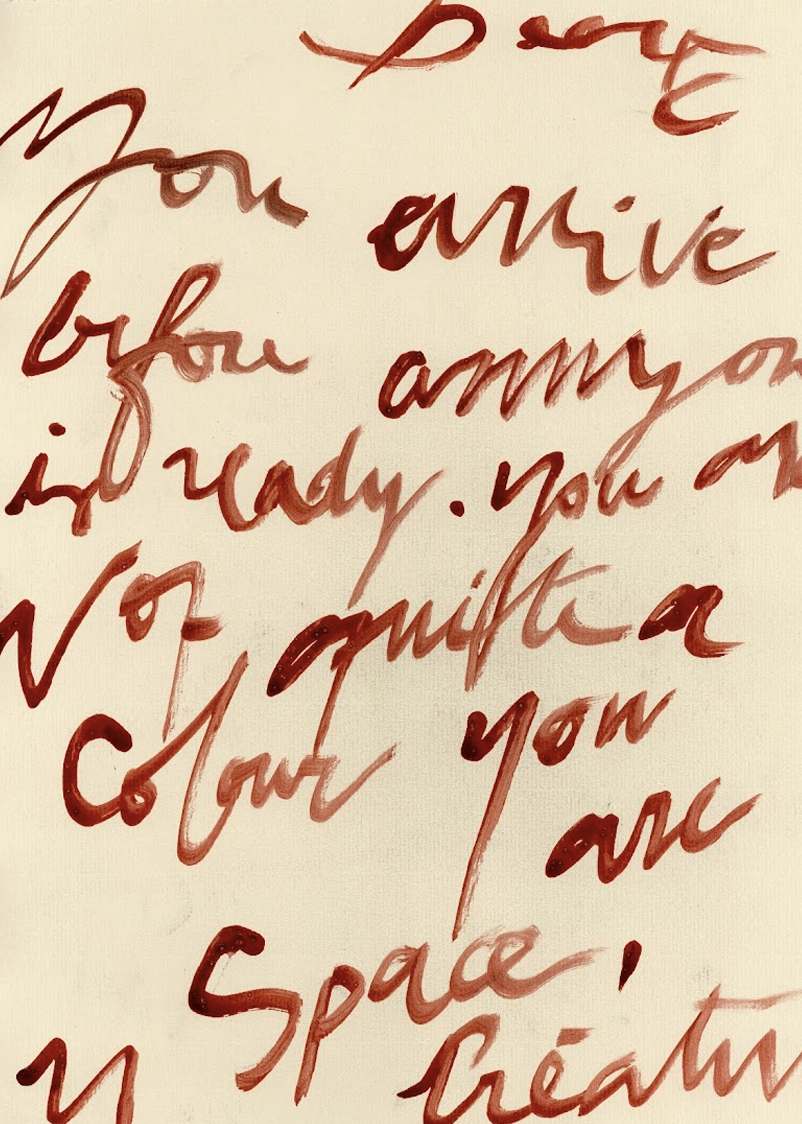 Dear
You arrive
before annyon
is ready. you are
Not quite a
Colour you
are
Space,
Creatu